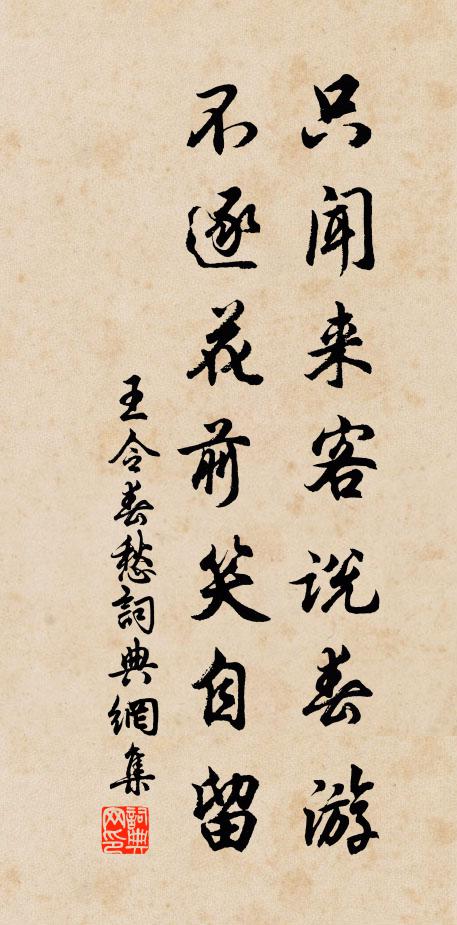 只闻来客说春游
不逐花前笑自留
王令春愁詞典網集
詞典
网印